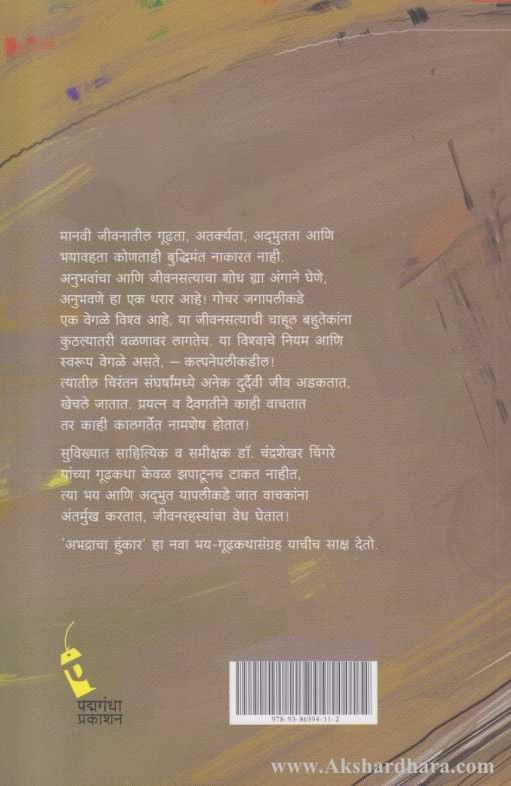 मानवी जीवनातील गूढता, अतर्क्यता, अद्‌भुतता आणि
भयावहता कोणताही बुद्धिमंत नाकारत नाही.
अनुभवांचा आणि जीवनसत्याचा शोध ह्या अंगाने घेणे,
अनुभवणे हा एक थरार आहे! गोचर जगापलीकडे
एक वेगळे विश्व आहे, या जीवनसत्याची चाहूल बहुतेकांना
कुठल्यातरी वळणावर लागतेच. या विश्वाचे नियम आणि
स्वरूप वेगळे असते, – कल्पनेपलीकडील!
त्यातील चिरंतन संघर्षांमध्ये अनेक दुर्दैवी जीव अडकतात,
खेचले जातात. प्रयत्न व दैवगतीने काही वाचतात
तर काही कालगर्तेत नामशेष होतात!
सुविख्यात साहित्यिक व समीक्षक डॉ. चंद्रशेखर चिंगरे
यांच्या गूढकथा केवळ झपाटूनच टाकत नाहीत,
त्या भय आणि अद्‌भुत यापलीकडे जात वाचकांना
अंतर्मुख करतात, जीवनरहस्यांचा वेध घेतात!
'अभद्राचा हुंकार' हा नवा भय-गूढकथासंग्रह याचीच साक्ष देतो.
पद्मगंधा
प्रकाशन
978-93-86594-11-2
www.Akshardhara.com